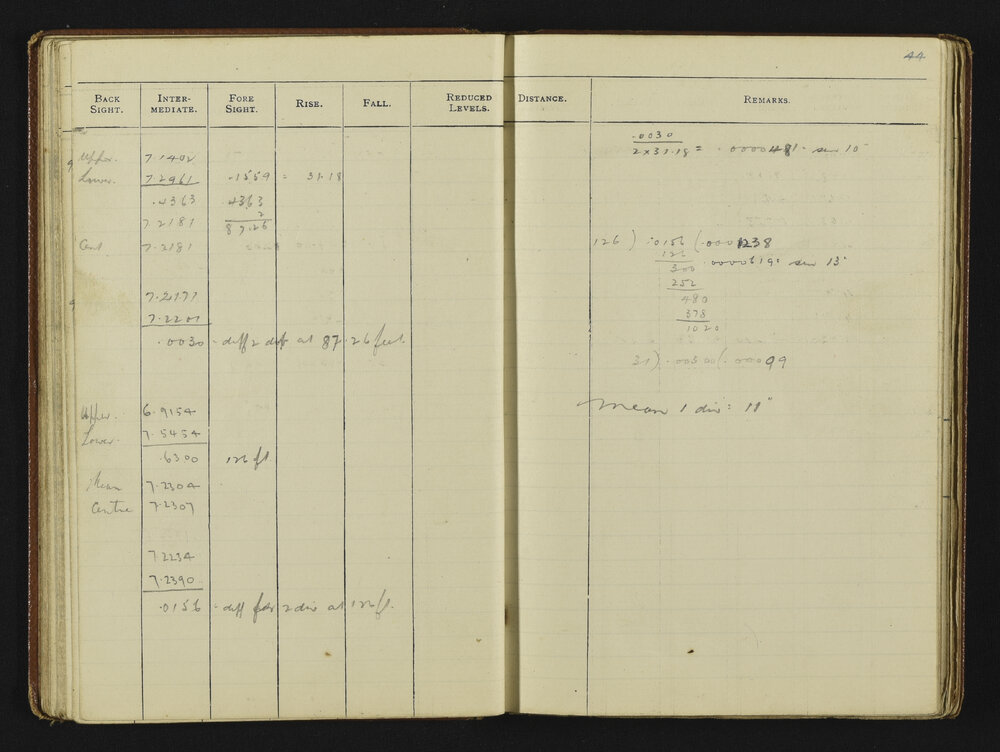 44
BACK SIGHT. INTER-MEDIATE. FORE SIGHT. RISE. FALL. REDUCED LEVELS. DISTANCE. REMARKS.
9 Upper. 7.1402
Lower. 7.2961 .1559 = 31.18
.4363 4363
7.2181 2
87.26
Cent 7.2181
9 7.2171
7.2201
.0030 = diff 2 div at 87.26 feet
Upper. 6.9154
Lower. 7.5454
.6300 126 ft
Mean 7.2304
Centre 7.2307
7.2234
7.2390
.0156 = diff for 2 div at 126 ft.
.0030
2 x 31.18 = .0000481 = sin 10"
126 ) .0156 (.0001238
126 .0000619 = sin 13"
300
252
480
378
1020
31) .00300 (.00099
Mean 1 div = 11"